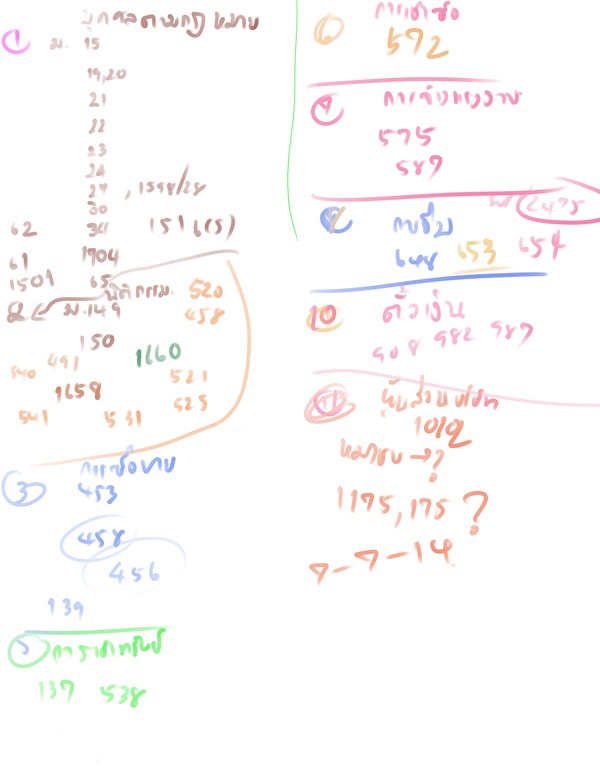 ① บุคคลตามกฎหมาย
ม. 15
19,20
21
22
23
24
27 , 1598/28
30
62 34 1516(5)
61 1704
1501 65
นิติกรรม 520
ม.149 458
150
491 1660
540 521
1658 525
541 531
③ การซื้อขาย
453
458
456
139
5 การเช่าทรัพย์
137 538
6 การเช่าซื้อ
572
การจ้างแรงงาน
575
587
2475
กู้ยืม
648 653 654
10 ตั๋วเงิน
908 982 987
11 หุ้นส่วนบริษัท
1012
หมายชน → ?
1175, 175 ?
7-7-14